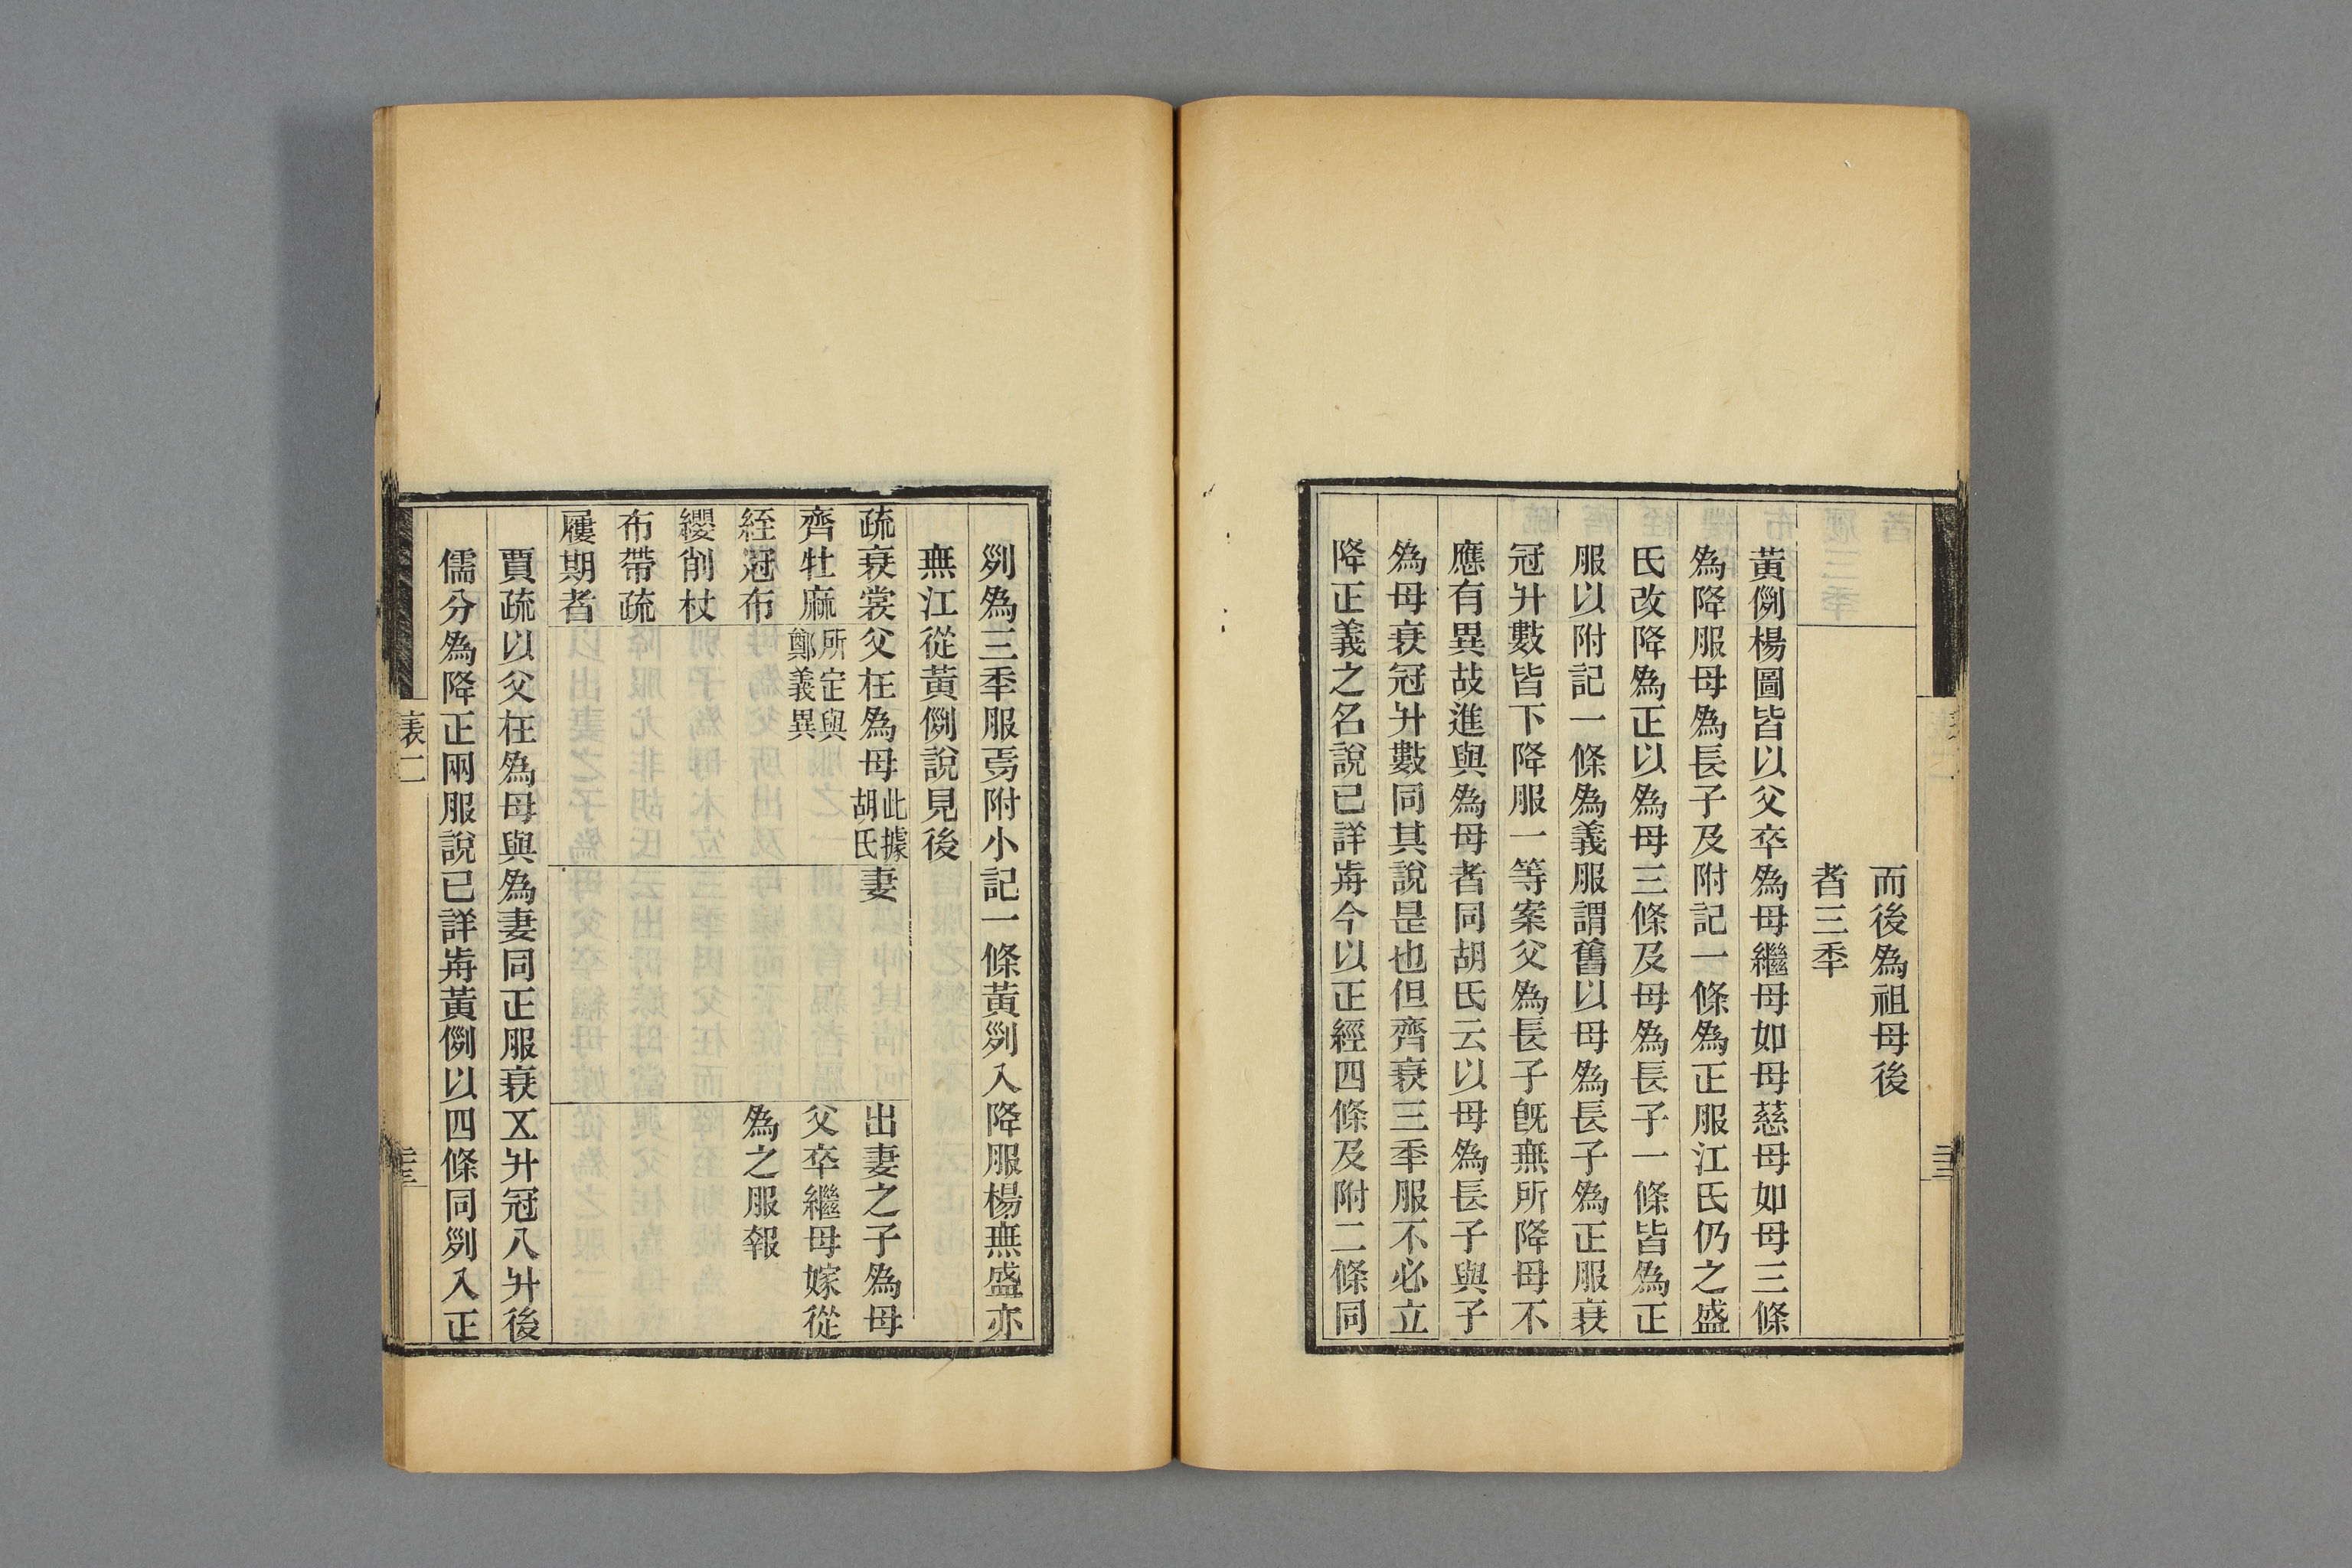 而後爲祖母後
者三秊
黃㒡楊圖皆以父卒爲母繼母如母慈母如母三條
爲降服母爲長子及附記一條爲正服江氏仍之盛
氏改降爲正以爲母三條及母爲長子一條皆爲正
服以附記一條爲義服謂舊以母爲長子爲正服衰
冠升數皆下降服一等案父爲長子旣無所降母不
應有異故進與爲母者同胡氏云以母爲長子與子
爲母衰冠升數同其說是也但齊衰三秊服不必立
降正義之名說已詳歬今以正經四條及附二條同
列爲三秊服焉附小記一條黃列入降服楊無盛亦
無江從黃㒡說見後
疏衰裳
齊牡麻
絰冠布
纓削杖
布帶疏
屨期者
父在爲母
此據
胡氏
所定與
鄭義異
妻
出妻之子爲母
父卒繼母嫁從
爲之服報
賈疏以父在爲母與爲妻同正服衰五升冠八升後
儒分爲降正兩服說已詳歬黃㒡以四條同列入正
表二